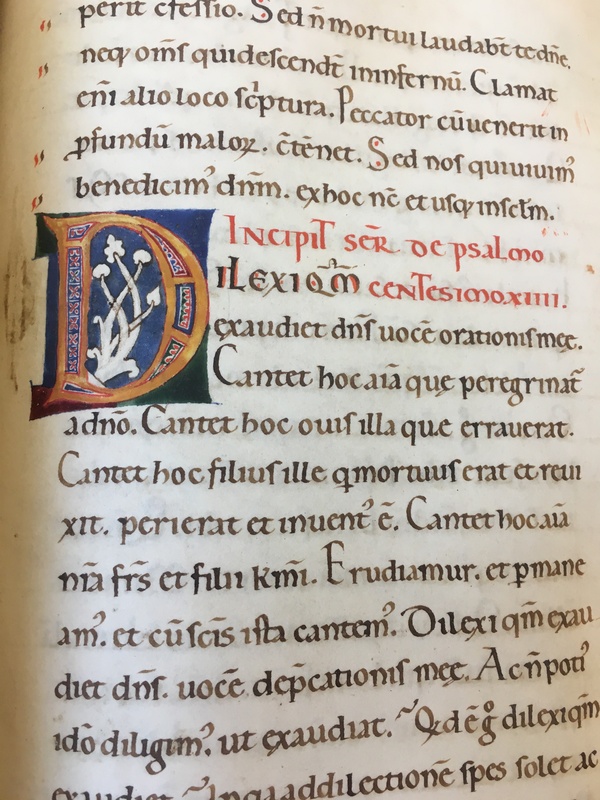 perit cfessio. Sed n̄ mortui laudabt̄ te dn̄e,
neq; om̄s qui descendt̄ in infernū. Clamat
eni alio loco sc̄ptura. Peccator cū uenerit in
ꝓfundū maloꝝ. c̄tēnet. Sed nos qui uiuim᾽
benedicim᾽ dn̄m. ex hoc nc̄ et usq; in sclm̄.
INCIPIT SER̄ DE psalmo
DILEXI QM̄ CENTESIMO XIIII.
exaudiet dn̄s uocē orationis meę.
Cantet hoc aīā quę peregrinat̄
a dn̄o. Cantet hoc ouis illa que errauerat.
Cantet hoc filius ille q mortuus erat et reui
xit. perierat et inuent᾽ ē. Cantet hoc aīā
nīā frs̄ et filii km̄i. Erudiamur. et ꝑmane
am᾽. et cū sc̄is ista cantem᾽. Dilexi qm̄ exau
diet dn̄s. uocē dep̄cationis meę. Ac n̄ poti᾽
idō diligim᾽, ut exaudiat. Qd ē g° dilexi qm̄
exaudiet addilectionē spes solet ac